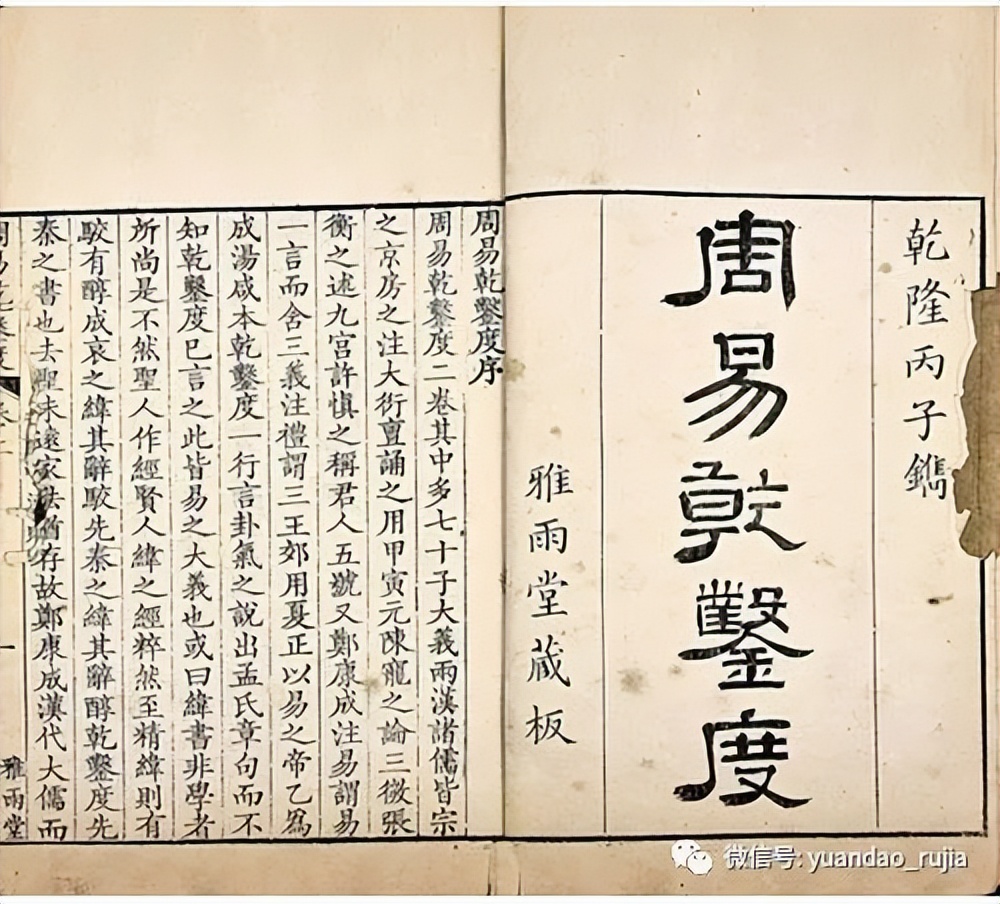 乾隆丙子鐫
周易乾鑿度
雅雨堂藏板
周易乾鑿度序
周易乾鑿度二卷其中多七十子大義兩漢諸儒皆宗
之京房之注大衍亶誦之用甲寅元陳寵之論三微張
衡之述九宮許慎之稱君人五號又鄭康成注易謂易
一言而含三義注禮謂三王郊用夏正以易之帝乙爲
成湯咸本乾鑿度一行言卦氣之說出孟氏章句而不
知乾鑿度已言之此皆易之大義也或曰緯書非學者
所尚是不然聖人作經賢人緯之經粹然至精緯則有
駮有醇成哀之緯其辭駮先秦之緯其辭醇乾鑿度先
秦之書也去聖未遠家法猶存故鄭康成漢代大儒而
雅雨堂
微信号: yuandao_rujia